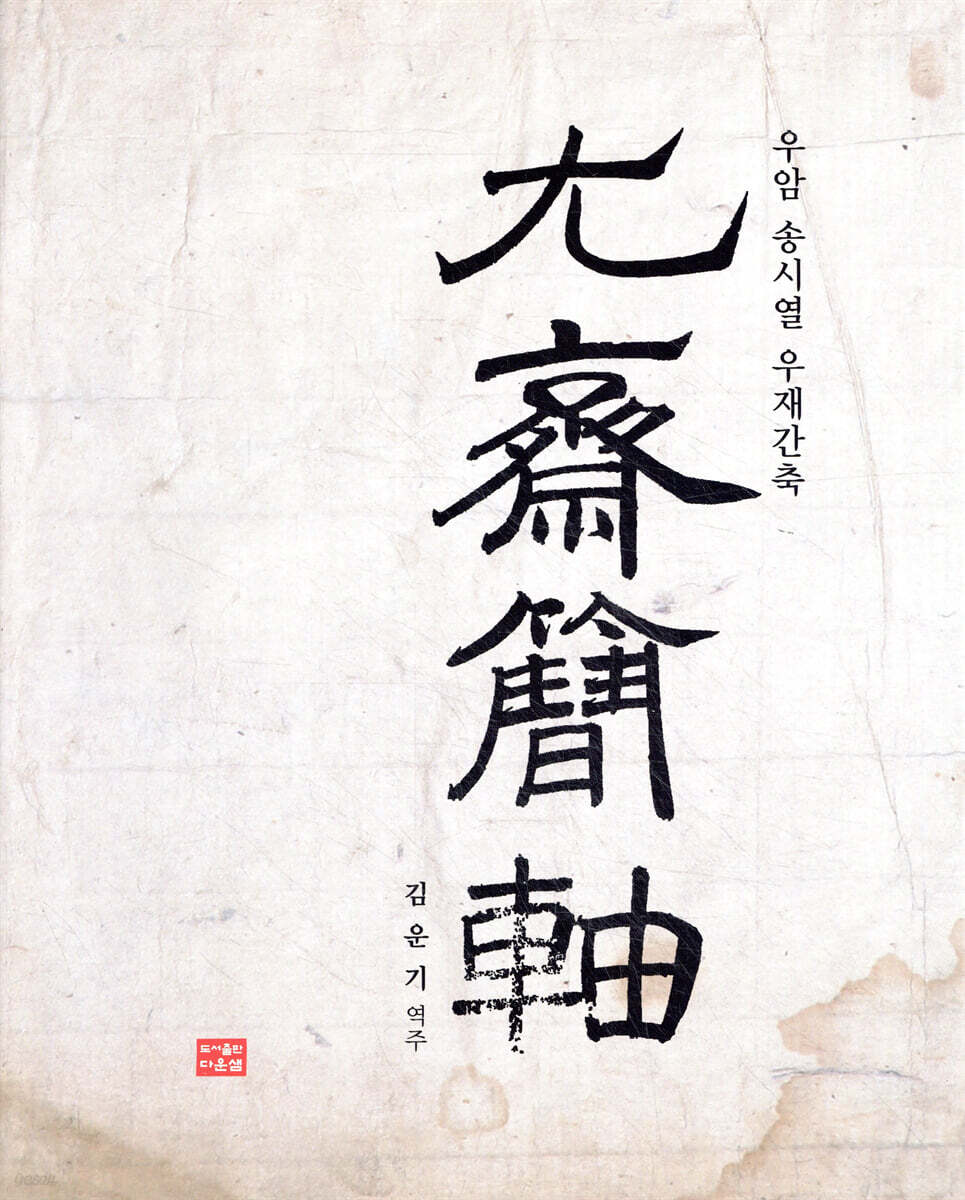 우암 송시열 우재간축
尤齋簡軸
김운기 역주
도서출판
다운샘